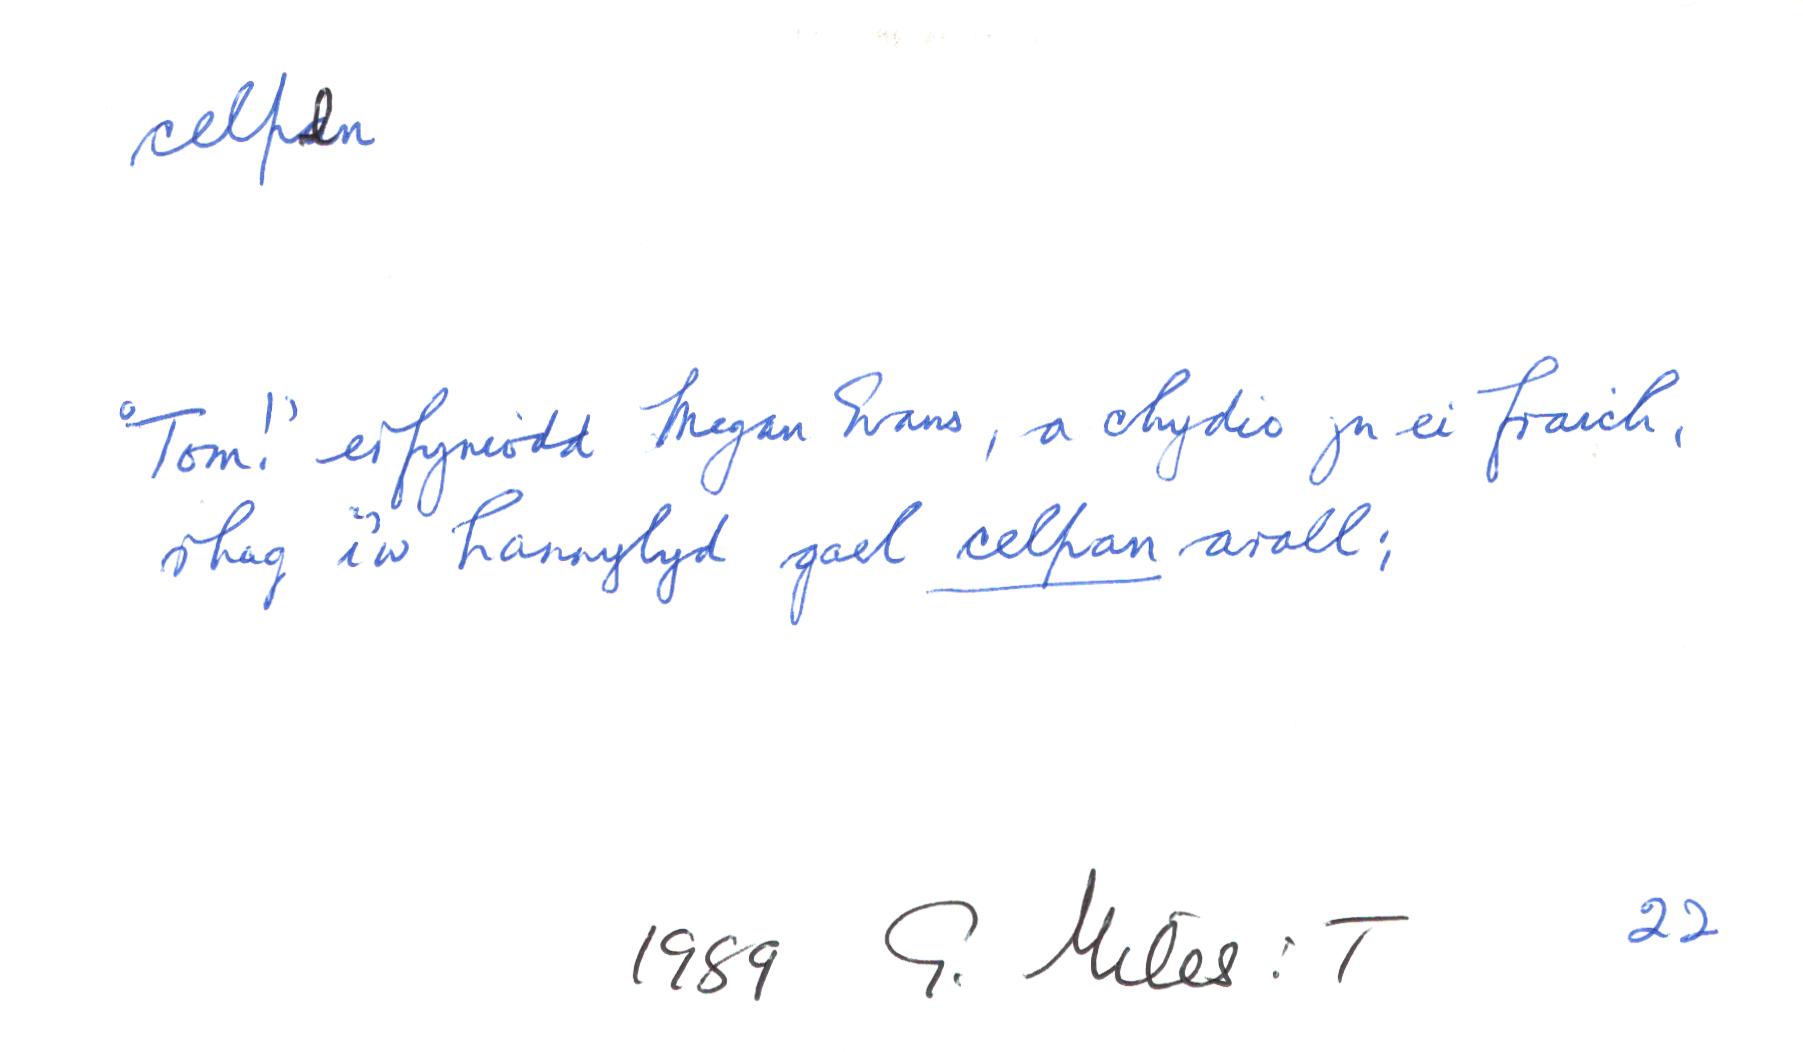 celpan
"Tom!" erfyniodd Megan Evans, a chydio yn ei fraich,
rhag i'w hannwylyd gael celpan arall;
1989 G. Miles: T 22